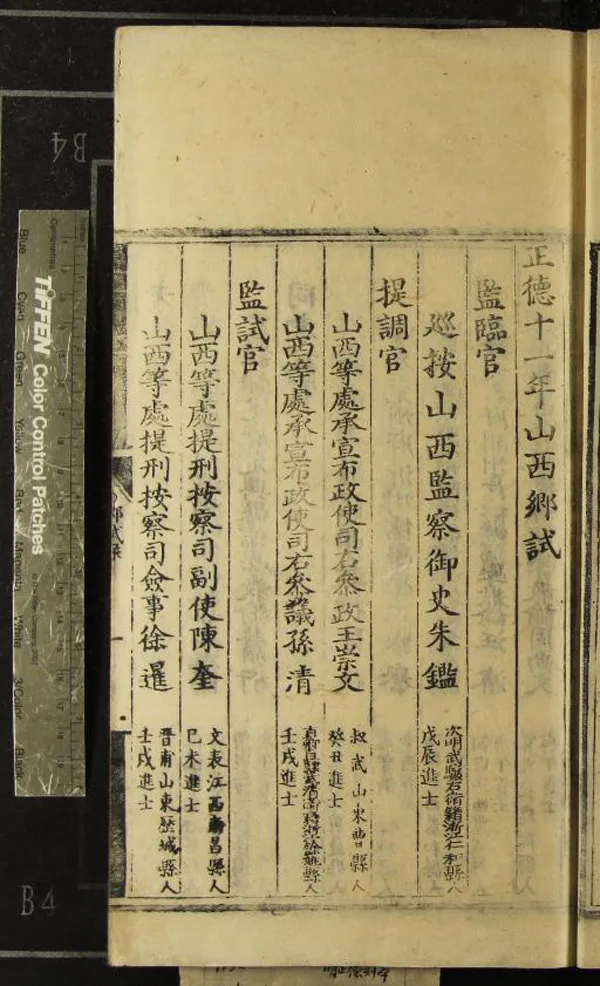 正德十一年山西鄉試
監臨官
巡按山西監察御史朱鑑
次明武驤右衛籍浙江仁和縣人
戊辰進士
提調官
山西等處承宣布政使司右叅政王崇文
叔武山東曹縣人
癸丑進士
山西等處承宣布政使司右叅議孫清
籍浙江餘姚縣人
壬戌進士
監試官
山西等處提刑按察司副使陳奎
文表江西南昌縣人
己未進士
山西等處提刑按察司僉事徐暹
晋甫山東歷城縣人
壬戌進士
鄉試錄
TIFFEN Color Control Patches
Blue
Cyan
Green
Yellow
Red
Magenta
White
3/Color
Black
B4
B4